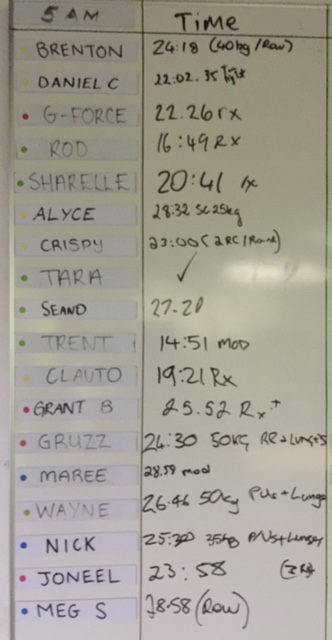 5 AM Time
BRENTON 24:18 (40kg/Row)
DANIEL C 22:02. 35
G-FORCE 22.26 rx
ROD 16:49 RX
SHARELLE 20:41 rx
ALYCE 28:32 Sc 25kg
CRISPY 23:00 (2RC/Round)
TARA ✓
SEAND 27.20
TRENT 14:51 mod
CLAUTO 19:21 Rx
GRANT B 25.52 Rx+
GRUZZ 26:30 50KG RR + Lunges
MAREE 28.58 mod
WAYNE 26.46 50kg PUs + Lunge
NICK 25:30 35kg P/Us + Lunges
JONEEL 23:58
MEG S 18:58 (Row)